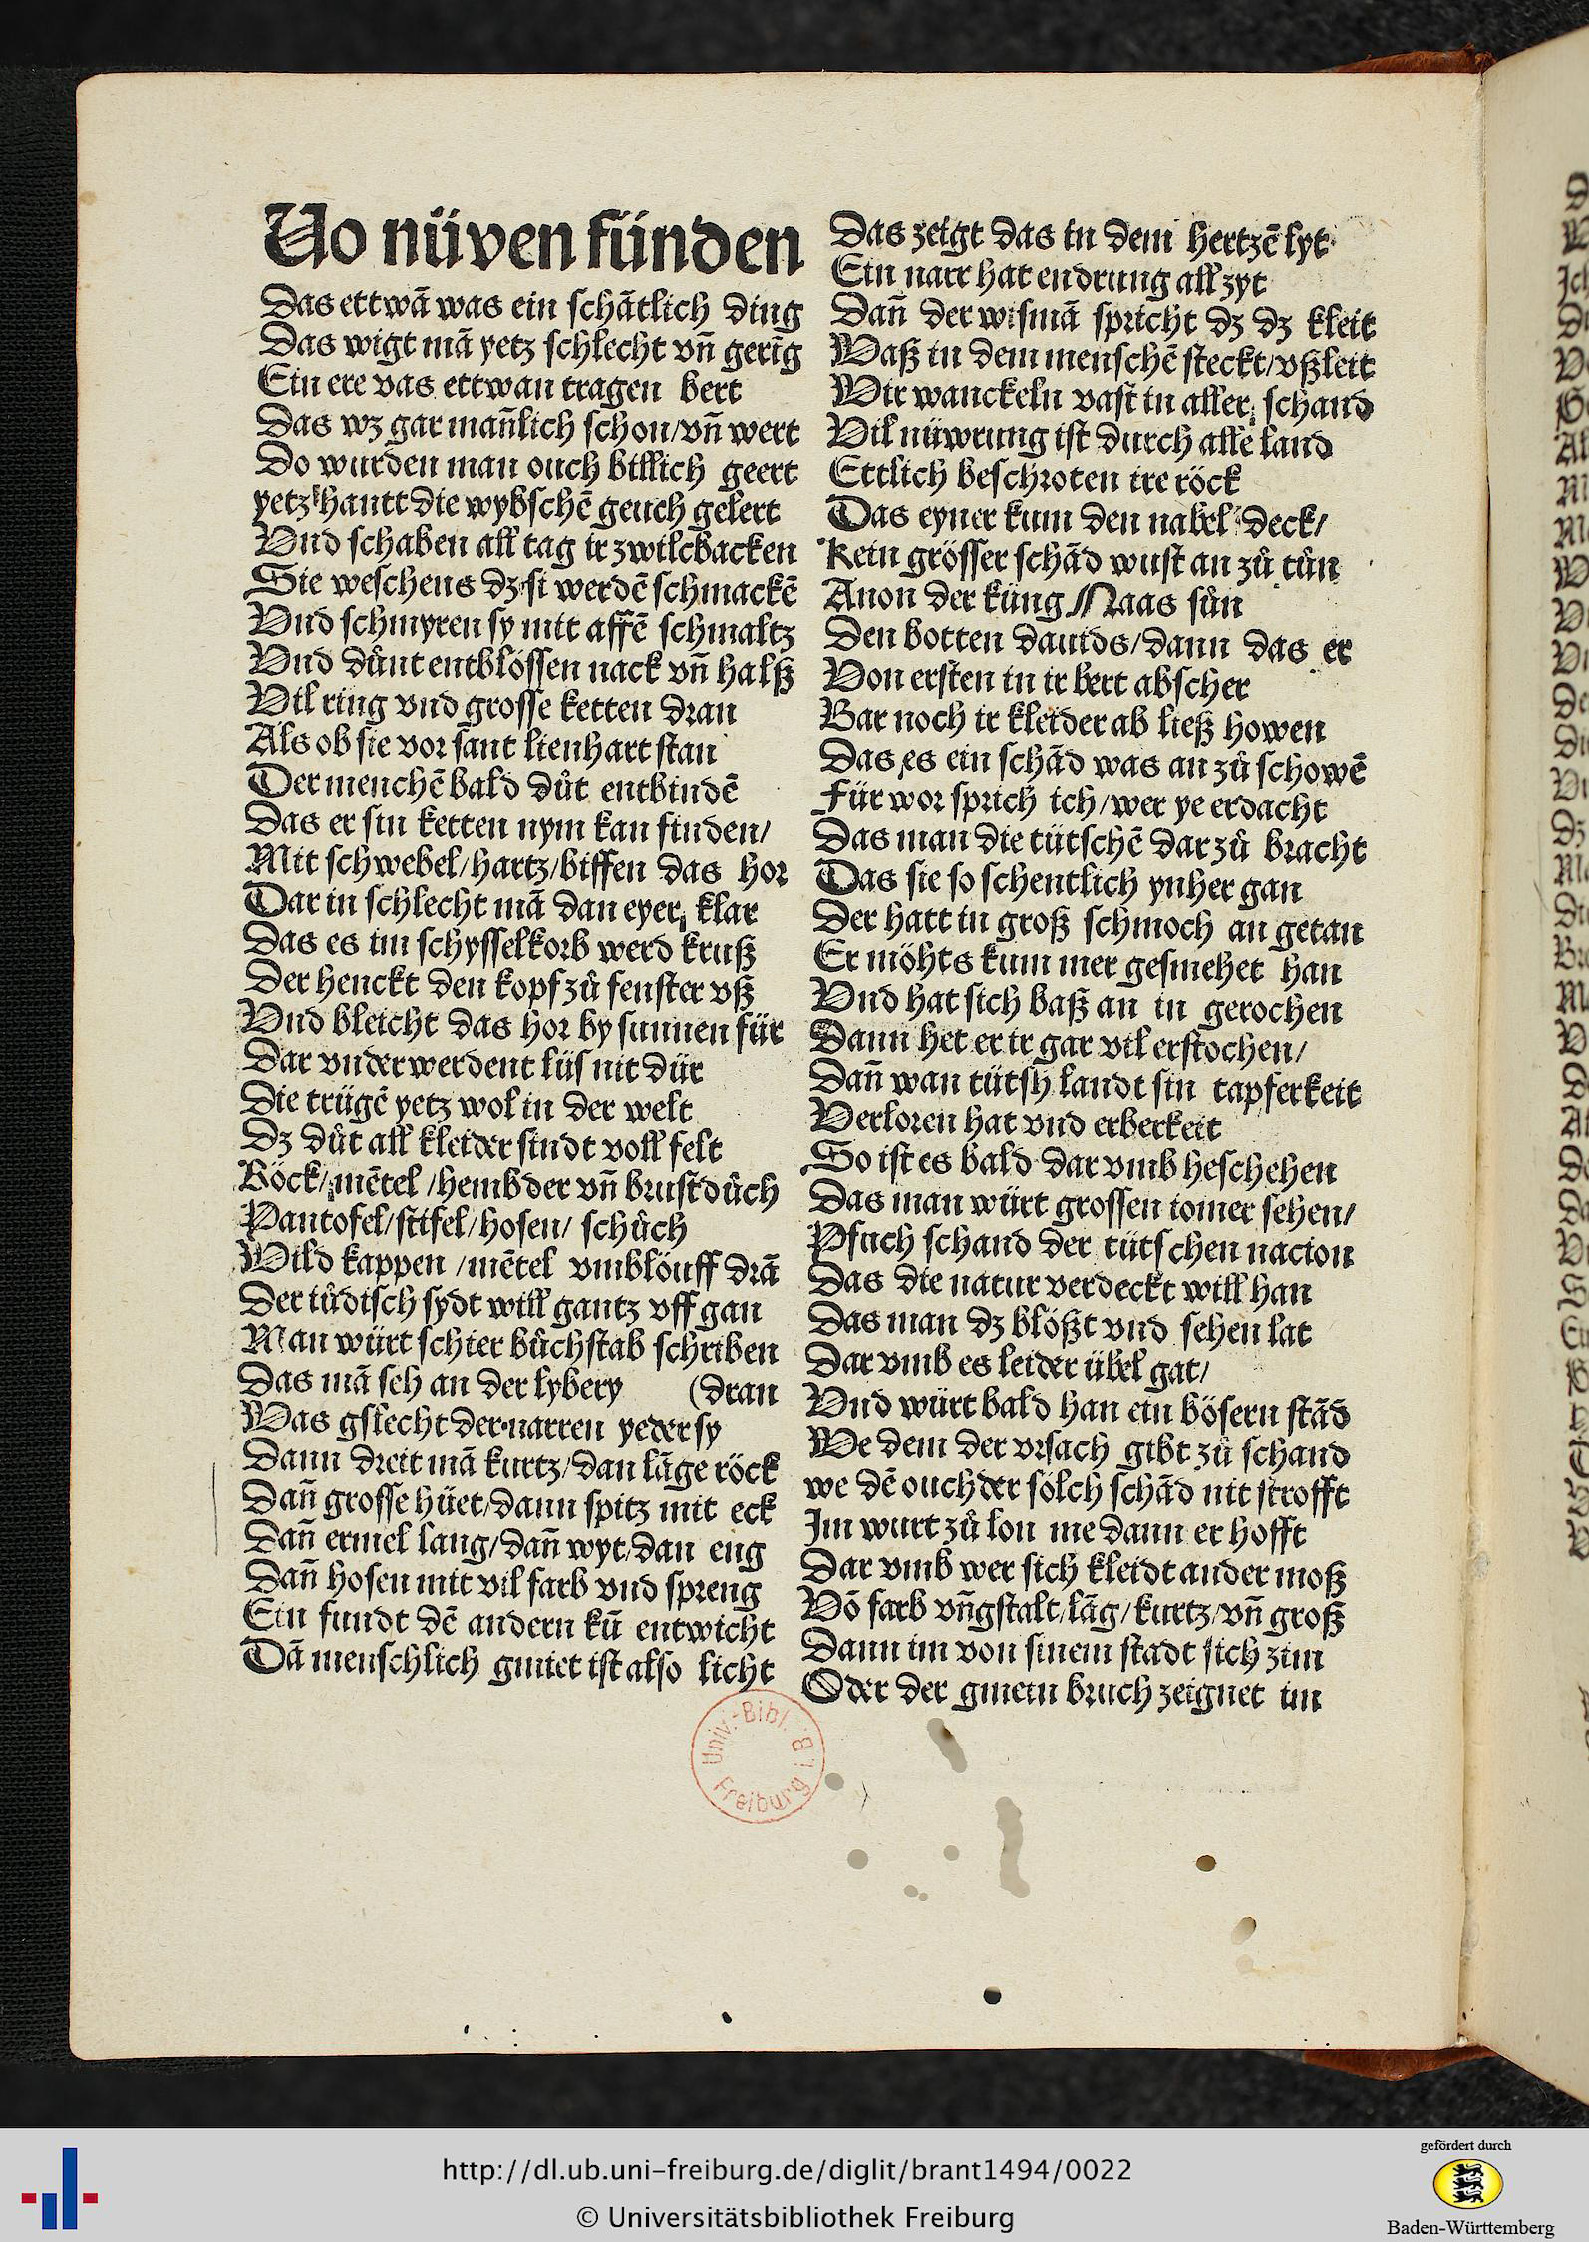 Uo nüven fünden
Das ettwā was ein schātlich ding
Das wigt mā yetz schlecht vn̄ gerīg
Ein ere vas ettwan tragen bert
Das wz gar man̄lich schon/vn̄ wert
Do wurden man ouch billich geert
yetz hantt die wybschē geuch gelert
Vnd schaben all tag ir zwilcbacken
Sie weschens dz si werdē schmackē
Vnd schmyren sy mit affē schmaltz
Vnd důnt entblössen nack vn̄ halß
Vil ring vnd grosse ketten dran
Als ob sie vor sant lienhart stan
Der menchē bald důt entbindē
Das er sin ketten nym kan finden/
Mit schwebel/hartz/biffen das hor
Dar in schlecht mā dan eyer klar
Das es im schysselkorb werd kruß
Der henckt den kopf zů fenster vß
Vnd bleicht das hor by sunnen für
Dar vnder werdent lüs nit dür
Die trügē yetz wol in der welt
Dz důt all kleider sindt voll felt
Röck/mētel/hembder vn̄ brustdůch
Pantofel/stifel/hosen/ schůch
Wild kappen /mētel vmblöuff drā
Der iůdisch sydt will gantz vff gan
Man würt schier bůchstab schriben
Das mā seh an der lybery (dran
Was gslecht der narren yeder sy
Dann dreit mā kurtz/dan lāge röck
Dan̄ grosse hüet/dann spitz mit eck
Dan̄ ermel lang/dan̄ wyt/dan eng
Dan̄ hosen mit vil farb vnd spreng
Ein fundt dē andern kū entwicht
Dā menschlich gmiet ist also licht
Das zeigt das in dem hertzē lyt
Ein narr hat endrung all zyt
Dan̄ der wismā spricht dz dz kleit
Waß in dem menschē steckt/vßleit
Wir wanckeln vast in aller schand
Vil nüwrung ist durch alle land
Ettlich beschroten ire röck
Das eyner kum den nabel deck/
Kein grösser schād wust an zů tůn
Anon der küng Naas sůn
Den botten dauids/dann das er
Von ersten in ir bert abscher
Bar noch ir kleider ab ließ howen
Das es ein schād was an zů schowē
Für wor sprich ich/wer ye erdacht
Das man die tütschē dar zů bracht
Das sie so schentlich ynher gan
Der hatt in groß schmoch an getan
Er möhts kum mer gesmehet han
Vnd hat sich baß an in gerochen
Dann het er ir gar vil erstochen/
Dan̄ wan tütsh landt sin tapferkeit
Verloren hat vnd erberkeit
So ist es bald dar vmb heschehen
Das man würt grossen iomer sehen/
Pfuch schand der tütschen nacion
Das die natur verdeckt will han
Das man dz blößt vnd sehen lat
Dar vmb es leider übel gat/
Vnd würt bald han ein bösern stād
We dem der vrsach gibt zů schand
we dē ouch der sölch schād nit strofft
Im wurt zů lon me dann er hofft
Dar vmb wer sich kleidt ander moß
Vō farb vn̄gstalt/lāg/kurtz/vn̄ groß
Dann im von sinem stadt sich zim
Oder der gmein bruch zeignet im
Univ.-Bibl.
Freiburg i B
http://dl.ub.uni-freiburg.de/diglit/brant1494/0022
© Universitätsbibliothek Freiburg
gefördert durch
Baden-Württemberg